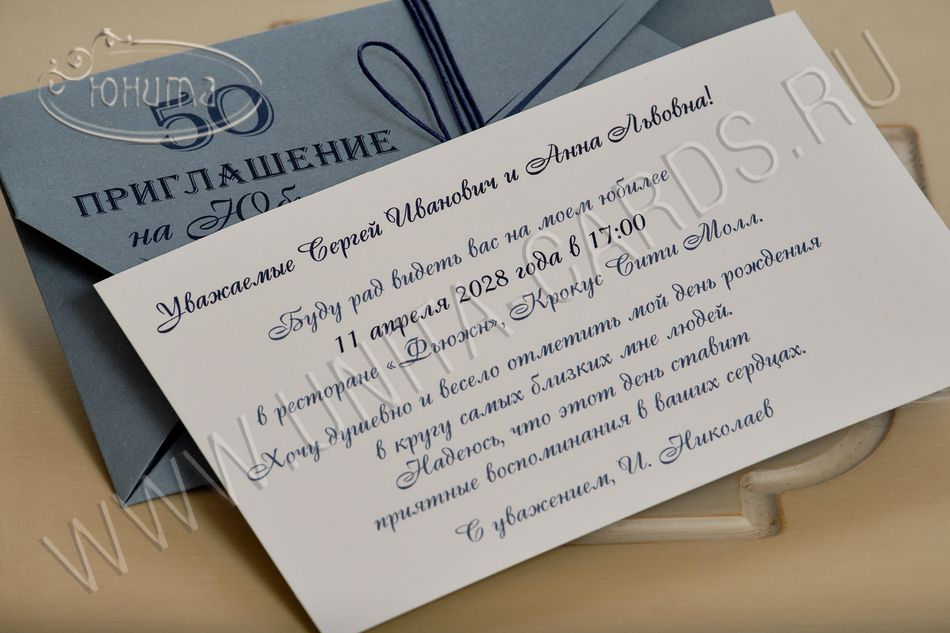 Юнита
50
ПРИГЛАШЕНИЕ
на Юб
Уважаемые Сергей Иванович и Анна Львовна!
Буду рад видеть вас на моем юбилее
11 апреля 2028 года в 17:00
в ресторане «Фьюжн», Крокус Сити Молл.
Хочу душевно и весело отметить мой день рождения
в кругу самых близких мне людей.
Надеюсь, что этот день ставит
приятные воспоминания в ваших сердцах.
С уважением, И. Николаев
WWW.UNITA-CARDS.RU